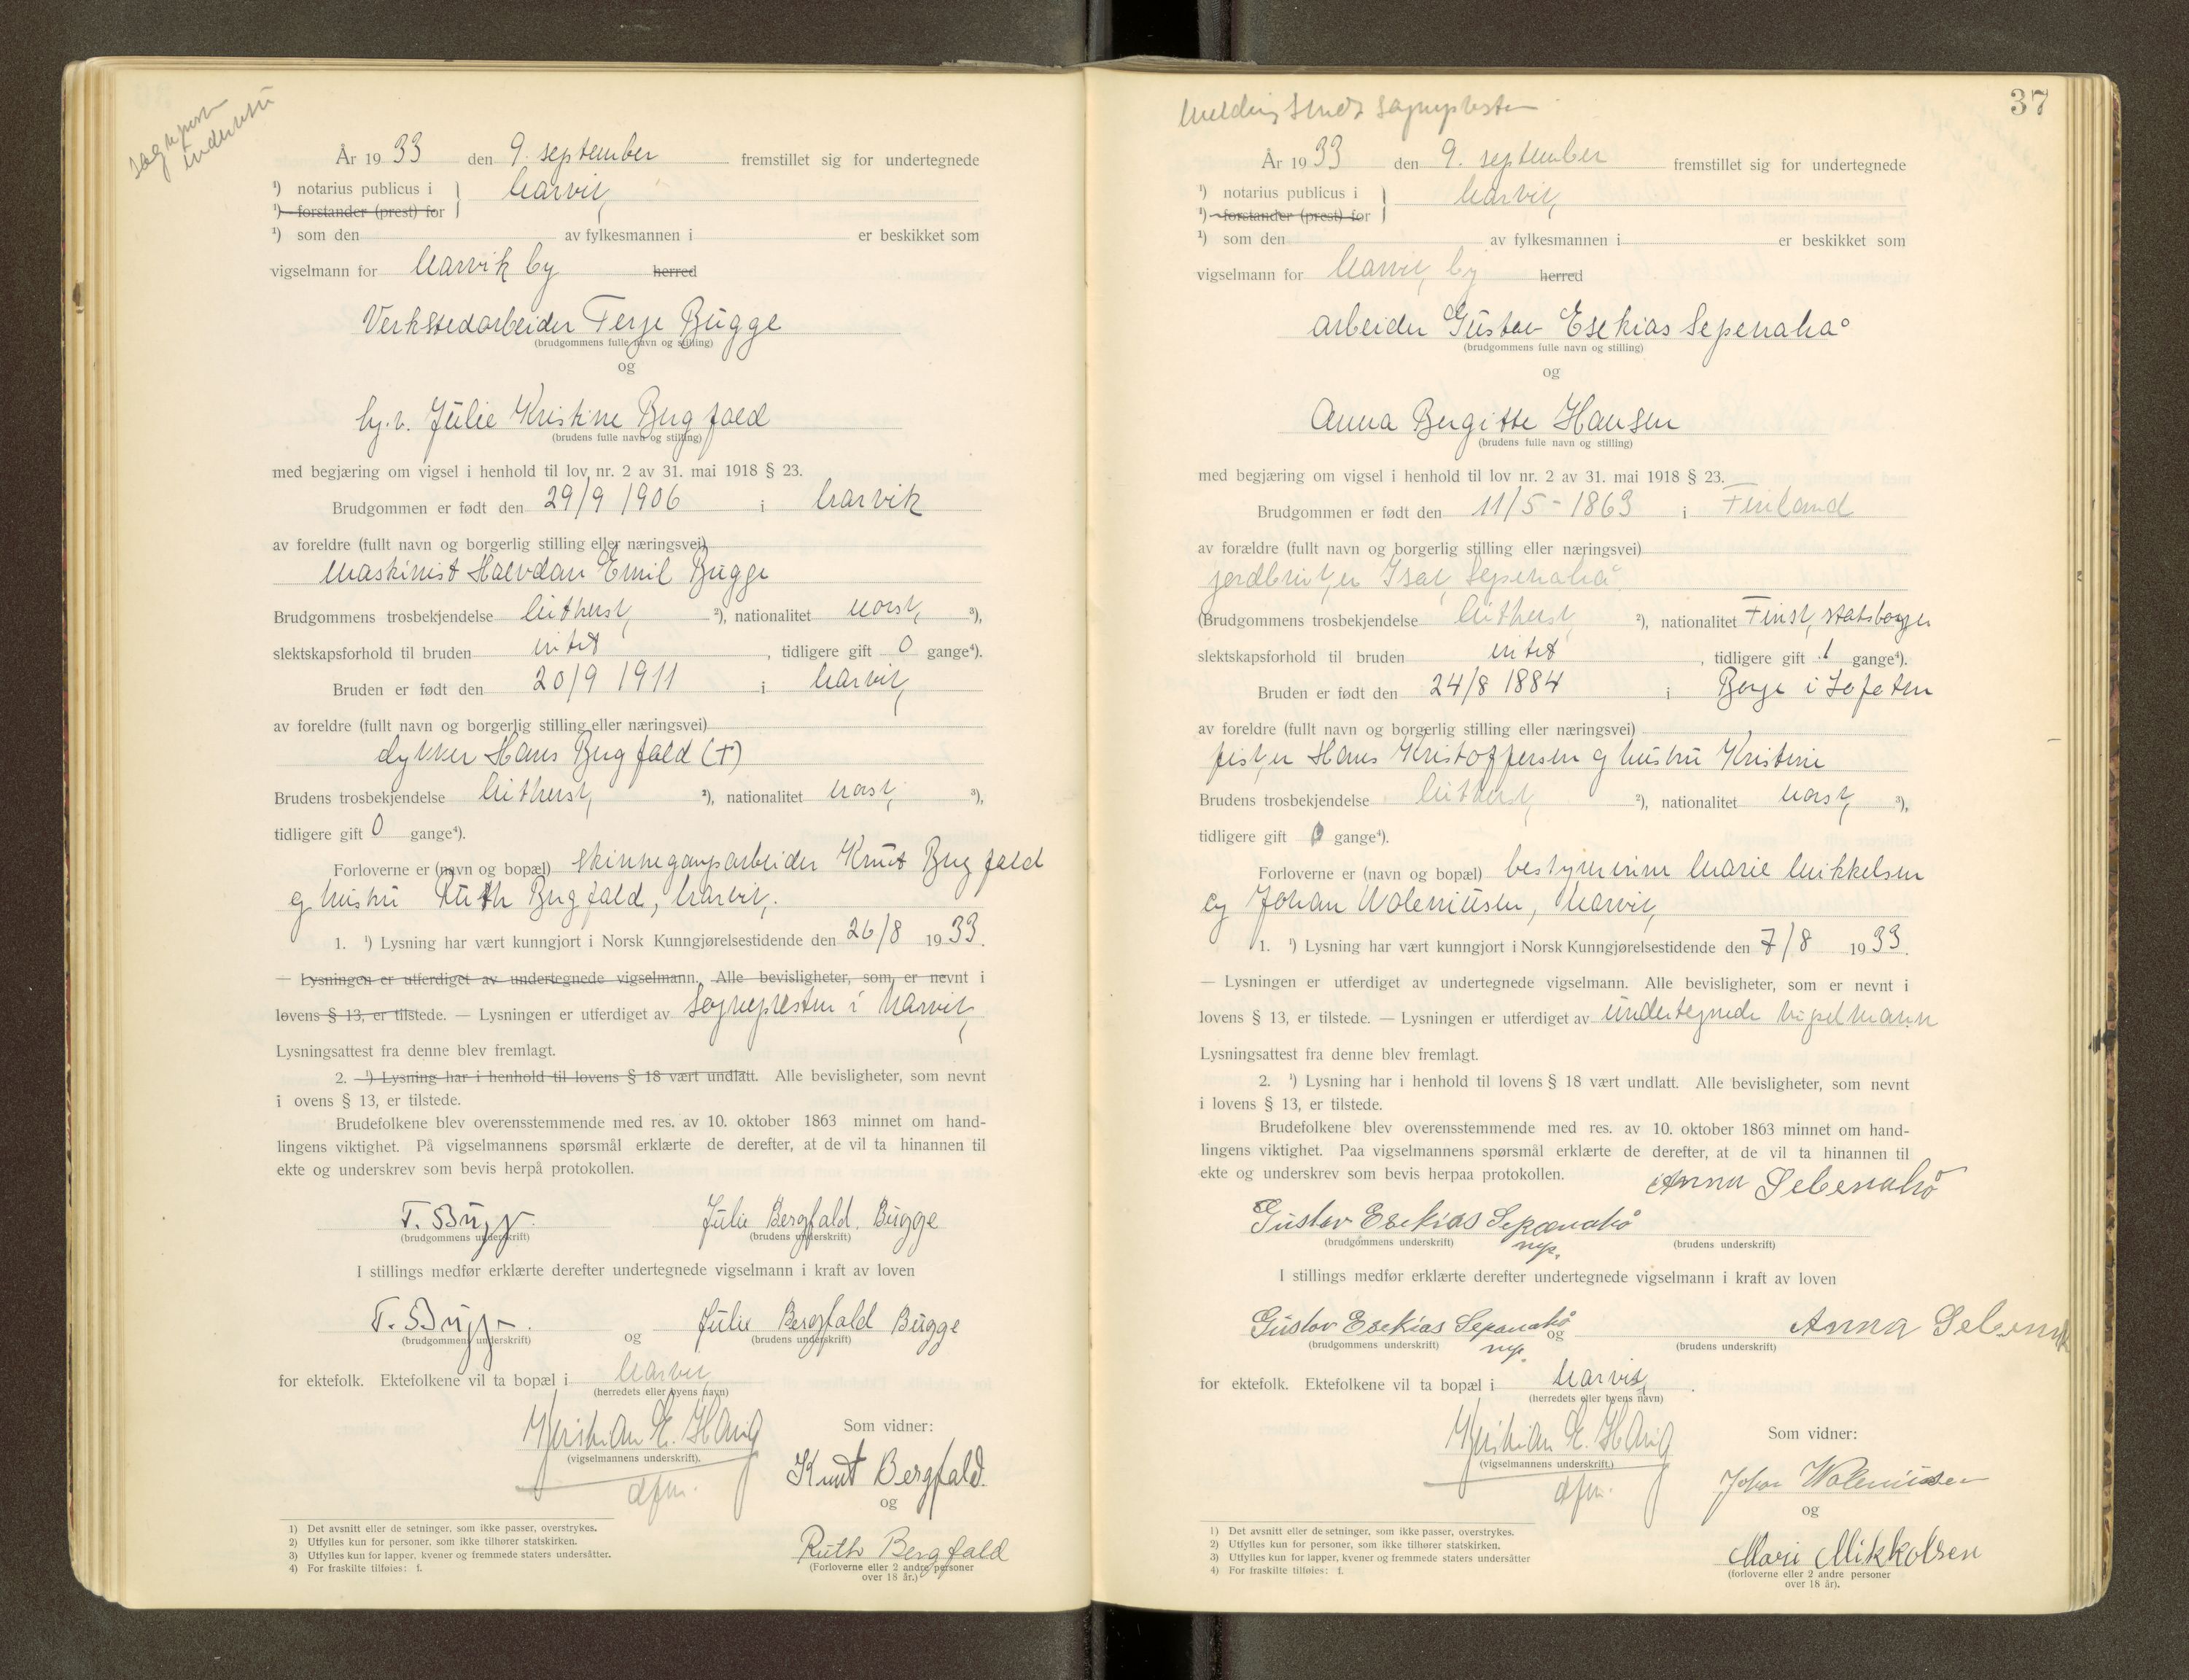 sognepr. underrettet
År 1933 den 9. september fremstillet sig for undertegnede
¹) notarius publicus i } Narvik
¹) forstander (prest) for
¹) som den av fylkesmannen i er beskikket som
vigselmann for Narvik by herred
Verkstedarbeider Terje Bugge
(brudgommens fulle navn og stilling)
og
Julie Kristine Bergfald
(brudens fulle navn og stilling)
med begjæring om vigsel i henhold til lov nr. 2 av 31. mai 1918 § 23.
Brudgommen er født den 29/9 1906 i Narvik
av foreldre (fullt navn og borgerlig stilling eller næringsvei)
Maskinist Halvdan Emil Bugge
Brudgommens trosbekjendelse luthersk ²), nationalitet norsk ³),
slektskapsforhold til bruden intet, tidligere gift 0 gange⁴).
Bruden er født den 20/9 1911 i Narvik
av foreldre (fullt navn og borgerlig stilling eller næringsvei)
dykker Hans Bergfald (†)
Brudens trosbekjendelse luthersk ²), nationalitet norsk ³),
tidligere gift 0 gange⁴).
Forloverne er (navn og bopæl) skinnegangsarbeider Knut Bergfald
og hustru Ruth Bergfald, Narvik.
1. ¹) Lysning har vært kunngjort i Norsk Kunngjørelsestidende den 26/8 1933.
— Lysningen er utferdiget av undertegnede vigselmann. Alle bevisligheter, som er nevnt i
lovens § 13, er tilstede. — Lysningen er utferdiget av sognepresten i Narvik
Lysningsattest fra denne blev fremlagt.
2. ¹) Lysning har i henhold til lovens § 18 vært undlatt. Alle bevisligheter, som nevnt
i ovens § 13, er tilstede.
Brudefolkene blev overensstemmende med res. av 10. oktober 1863 minnet om hand-
lingens viktighet. På vigselmannens spørsmål erklærte de derefter, at de vil ta hinannen til
ekte og underskrev som bevis herpå protokollen.
T. Bugge. Julie Bergfald. Bugge
(brudgommens underskrift) (brudens underskrift)
I stillings medfør erklærte derefter undertegnede vigselmann i kraft av loven
T. Bugge. og Julie Bergfald Bugge
(brudgommens underskrift) (brudens underskrift)
for ektefolk. Ektefolkene vil ta bopæl i Narvik
(herredets eller byens navn)
Kristian E. Haug
(vigselmannens underskrift).
dfm.
Som vidner:
Knut Bergfald.
og
Ruth Bergfald
(Forloverne eller 2 andre personer
over 18 år.)
1) Det avsnitt eller de setninger, som ikke passer, overstrykes.
2) Utfylles kun for personer, som ikke tilhører statskirken.
3) Utfylles kun for lapper, kvener og fremmede staters undersåtter.
4) For fraskilte tilføies: f.
37
Melding sendt sognepresten
År 1933 den 9. september fremstillet sig for undertegnede
¹) notarius publicus i } Narvik
¹) forstander (prest) for
¹) som den av fylkesmannen i er beskikket som
vigselmann for Narvik by herred
arbeider Gustav Esekias Sepenaho
(brudgommens fulle navn og stilling)
og
Anna Bergitte Hansen
(brudens fulle navn og stilling)
med begjæring om vigsel i henhold til lov nr. 2 av 31. mai 1918 § 23.
Brudgommen er født den 11/5 - 1863 i Finland
av forældre (fullt navn og borgerlig stilling eller næringsvei)
jordbruker Isak Sepenaho
(Brudgommens trosbekjendelse luthersk ²), nationalitet Finsk statsborger
slektskapsforhold til bruden intet, tidligere gift 1 gange⁴).
Bruden er født den 24/8 1884 i Borge i Lofoten
av foreldre (fullt navn og borgerlig stilling eller næringsvei)
fisker Hans Kristoffersen og hustru Kristine
Brudens trosbekjendelse luthersk ²), nationalitet norsk ³),
tidligere gift 0 gange⁴).
Forloverne er (navn og bopæl) bestyrerinne Marie Mikkelsen
og Johan Waleniusen, Narvik
1. ¹) Lysning har vært kunngjort i Norsk Kunngjørelsestidende den 7/8 1933.
— Lysningen er utferdiget av undertegnede vigselmann. Alle bevisligheter, som er nevnt i
lovens § 13, er tilstede. — Lysningen er utferdiget av undertegnede vigselmann
Lysningsattest fra denne blev fremlagt.
2. ¹) Lysning har i henhold til lovens § 18 vært undlatt. Alle bevisligheter, som nevnt
i lovens § 13, er tilstede.
Brudefolkene blev overensstemmende med res. av 10. oktober 1863 minnet om hand-
lingens viktighet. Paa vigselmannens spørsmål erklærte de derefter, at de vil ta hinannen til
ekte og underskrev som bevis herpaa protokollen.
Anna Sebenahò
Gustav Esekias Sepænahò
(brudgommens underskrift) mp. (brudens underskrift)
I stillings medfør erklærte derefter undertegnede vigselmann i kraft av loven
Gustav Esekias Sepænahò og Anna
(brudgommens underskrift) mp. (brudens underskrift)
for ektefolk. Ektefolkene vil ta bopæl i Narvik.
(herredets eller byens navn)
Kristian E. Haug
(vigselmannens underskrift.)
dfm.
Som vidner:
Johan Waleniussen
og
Marie Mikkelsen
(forloverne eller 2 andre personer
over 18 år).
1) Det avsnitt eller de setninger, som ikke passer, overstrykes.
2) Utfylles kun for personer, som ikke tilhører statskirken.
3) Utfylles kun for lapper, kvener og fremmede staters undersåtter
4) For fraskilte tilføies: f.